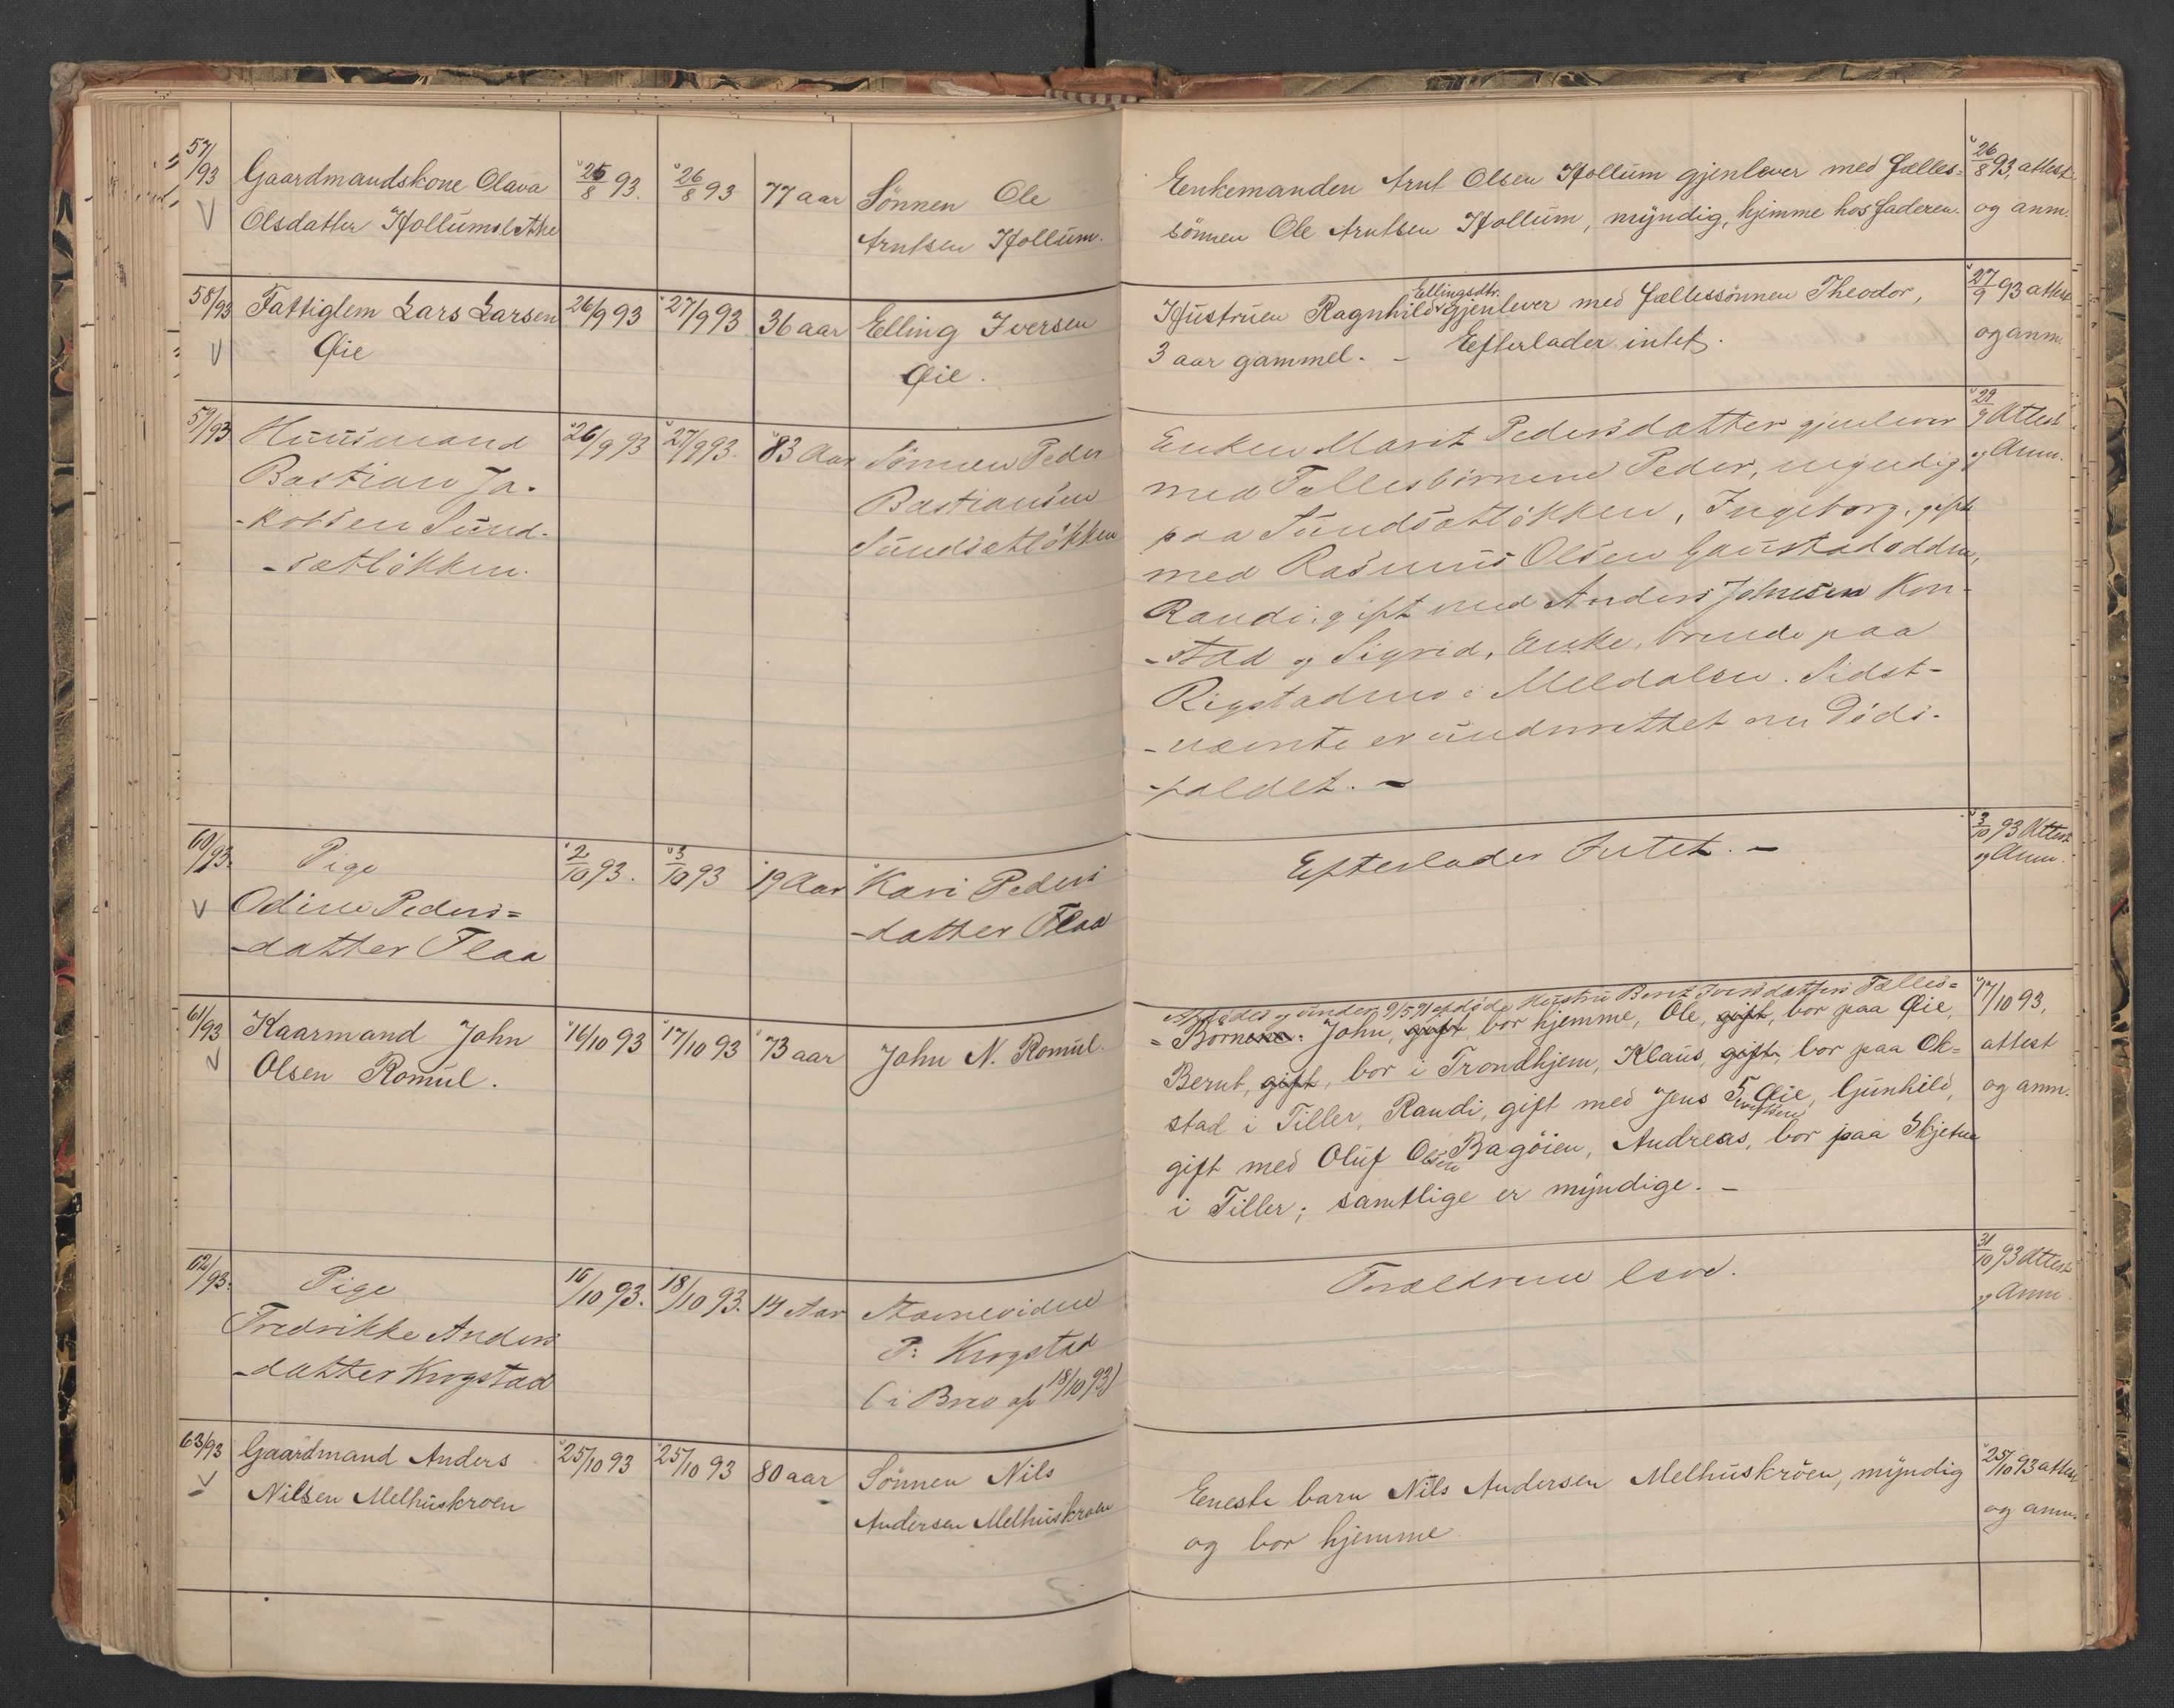 57/93
Gaardmandskone Olava
Olsdatter Hollumslette
25/8 93.
26/8 93
77 aar
Sønnen Ole
Arntsen Hollum.
Enkemanden Arnt Olsen Hollum gjenlever med Fælles-
sønnen Ole Arntsen Hollum, myndig, hjemme hos Faderen.
26/8 93, attest
og anm.
58/93
Fattiglem Lars Larsen
Øie
26/9 93
27/9 93
36 aar
Elling Iversen
Øie.
Ellingsdtr.
Hustruen Ragnhild gjenlever med Fællessønnen Theodor,
3 aar gammel. - Efterlader intet.
27/9 93 attest
og anm.
59/93
Huusmand
Bastian Ja-
-kobsen Sund-
-sætløkken.
26/9 93
27/9 93.
83 Aar
Sønnen Peder
Bastiansen
Sundsætløkken
Enken Marit Pedersdatter gjenlever
med Fællesbørnene Peder, myndig
paa Sundsætløkken, Ingeborg, gift
med Rasmus Olsen Gaustadodden,
Randi, gift med Anders Johnsen Kon-
-stad og Sigrid, Enke, boende paa
Rigstadmo i Meldalen. Sidst-
-nævnte er underrettet om Døds-
-faldet. -
29/9 Attest
og Anm.
60/93.
Pige
Odine Peders=
-datter Flaa
2/10 93.
3/10 93
19 Aar
Kari Peders
-datter Flaa
Efterlader Intet. -
3/10 93 Attest
og Anm.
61/93
Kaarmand John
Olsen Romul.
16/10 93
17/10 93
73 aar
John N. Romul.
Afdødes og under 9/5 91 afdøde Hustru Berit Iversdatters Fælles=
= Børnene: John, gift, bor hjemme, Ole, gift, bor paa Øie,
Bernt, gift, bor i Trondhjem, Klaus, gift, bor paa Ok=
stad i Tiller, Randi, gift med Jens Øie, Gunhild,
gift med Oluf Olsen Bagøien, Andreas, bor paa Skjetne
i Tiller; samtlige er myndige. -
17/10 93,
attest
og anm.
62/93.
Pige
Fredrikke Anders
-datter Krogstad
16/10 93.
18/10 93.
14 Aar
Stævnevidne
P. Krogstad
(i Brev af 18/10 93)
Forældrene leve.
31/10 93 Attest
og Anm.
63/93
Gaardmand Anders
Nilsen Melhuskroen
25/10 93
25/10 93
80 aar
Sønnen Nils
Andersen Melhuskroen
Eneste barn Nils Andersen Melhuskrøen, myndig
og bor hjemme
25/10 93 attest
og anm.